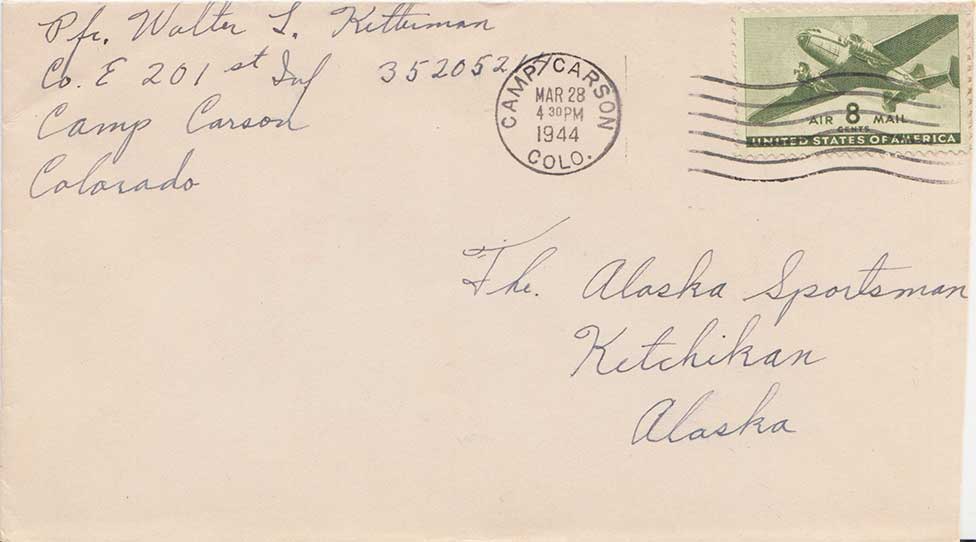 Pfc. Walter L. Kitterman
Co. E 201st Inf
Camp Carson
Colorado
CAMP CARSON
MAR 28
4 30 PM
1944
COLO.
AIR 8 MAIL
CENTS
UNITED STATES OF AMERICA
The. Alaska Sportsman
Ketchikan
Alaska